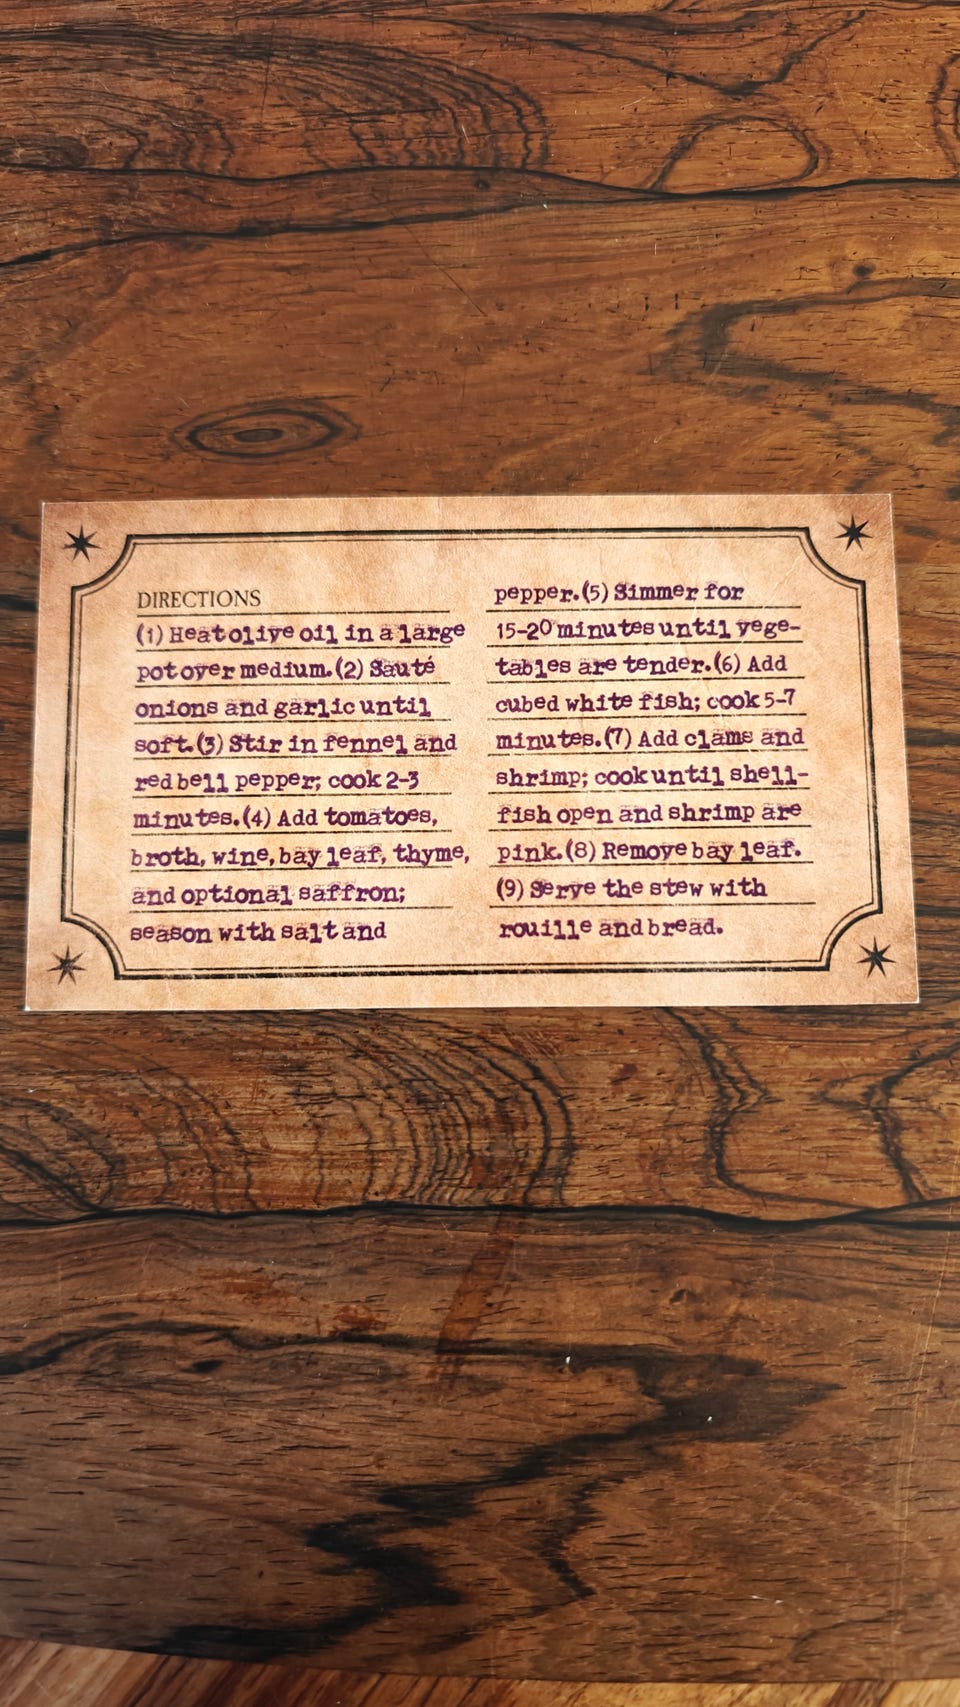 DIRECTIONS
(1) Heat olive oil in a large
pot over medium. (2) Sauté
onions and garlic until
soft. (3) Stir in fennel and
red bell pepper; cook 2-3
minutes. (4) Add tomatoes,
broth, wine, bay leaf, thyme,
and optional saffron;
season with salt and
pepper. (5) Simmer for
15-20 minutes until vege-
tables are tender. (6) Add
cubed white fish; cook 5-7
minutes. (7) Add clams and
shrimp; cook until shell-
fish open and shrimp are
pink. (8) Remove bay leaf.
(9) Serve the stew with
rouille and bread.